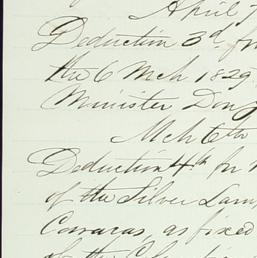 April
Deduction 3d for
the 6 Mch 1829
Minister Don
Mch 6th
Deduction 4th for
of the Silver Lamp
Corraras, as fixed
of the